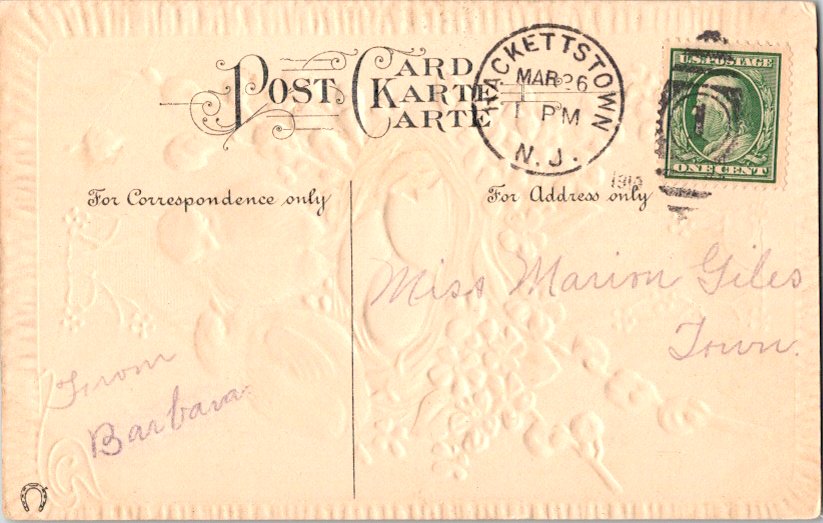 POST CARD
KARTE
CARTE
HACKETTSTOWN
MAR 26
1 PM
N. J.
1913
U.S. POSTAGE
1
ONE CENT
For Correspondence only
For Address only
Miss Marion Giles
Town.
From
Barbara.